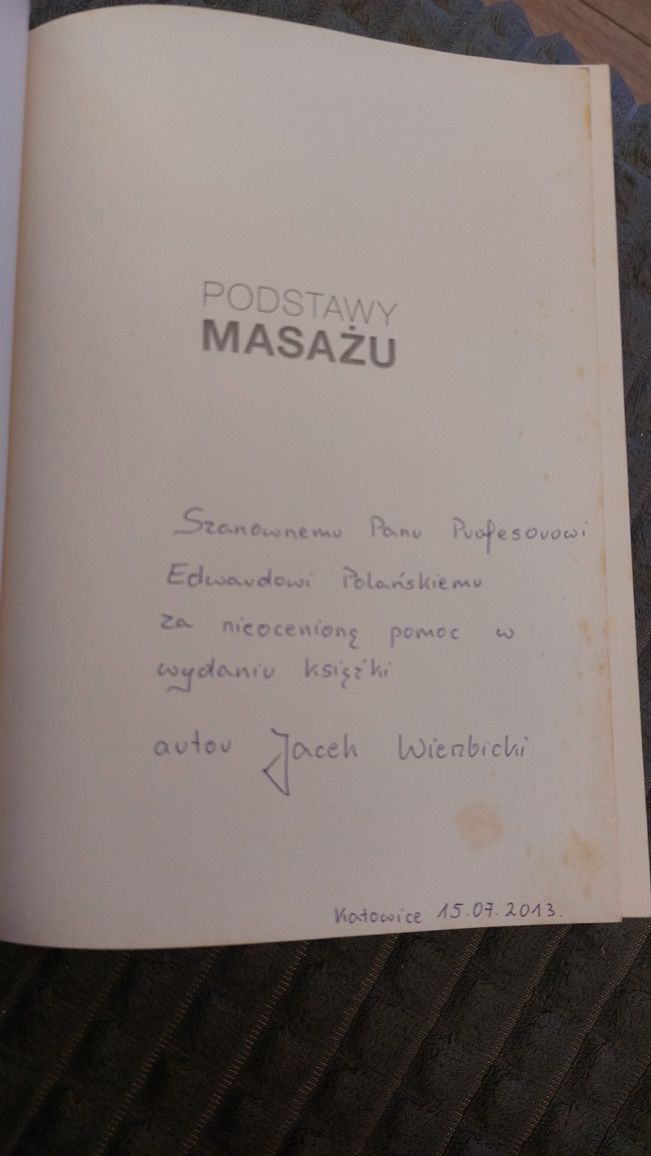 PODSTAWY
MASAŻU
Szanownemu Panu Profesorowi
Edwardowi Polańskiemu
za nieocenioną pomoc w
wydaniu książki
autor Jacek Wierzbicki
Katowice 15.07.2013.